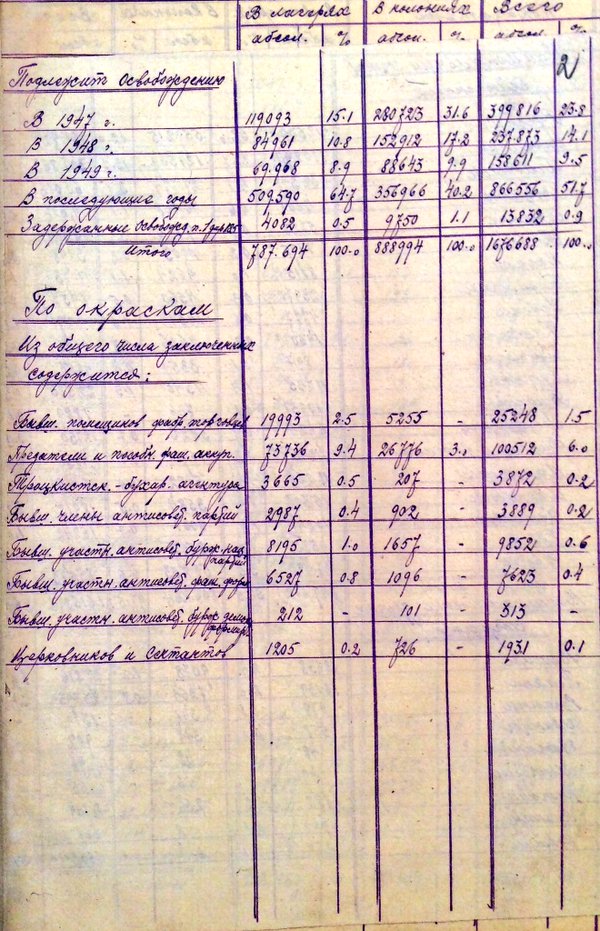 В лагерях В колониях Всего
абсол. % абсол. % абсол. %
2
Подлежит освобождению
В 1947 г. 119093 15.1 280723 31.6 399816 23.8
В 1948 г. 84961 10.8 152912 17.2 237.873 14.1
В 1949 г. 69.968 8.9 88643 9.9 158611 9.5
В последующие годы 509.590 64.7 356966 40.2 866556 51.7
Задержанные освобожд. 4082 0.5 9750 1.1 13832 0.9
Итого 787.694 100.0 888994 100.0 1676688 100.0
По окраскам
Из общего числа заключенных
содержится:
Бывш. помещиков фабр. торговцев 19993 2.5 5255 - 25248 1.5
Предатели и пособн. фаш. оккуп. 73736 9.4 26776 3.0 100512 6.0
Троцкистск. - бухар. агентура 3665 0.5 207 - 3872 0.2
Бывш. члены антисовет. партий 2987 0.4 902 - 3889 0.2
Бывш. участн. антисовет. бурж. нац. 8195 1.0 1657 - 9852 0.6
партий
Бывш. участн. антисовет. фаш. форм. 6527 0.8 1096 - 7623 0.4
Бывш. участн. антисовет. бурж. 212 - 101 - 313 -
Церковников и Сектантов 1205 0.2 726 - 1931 0.1